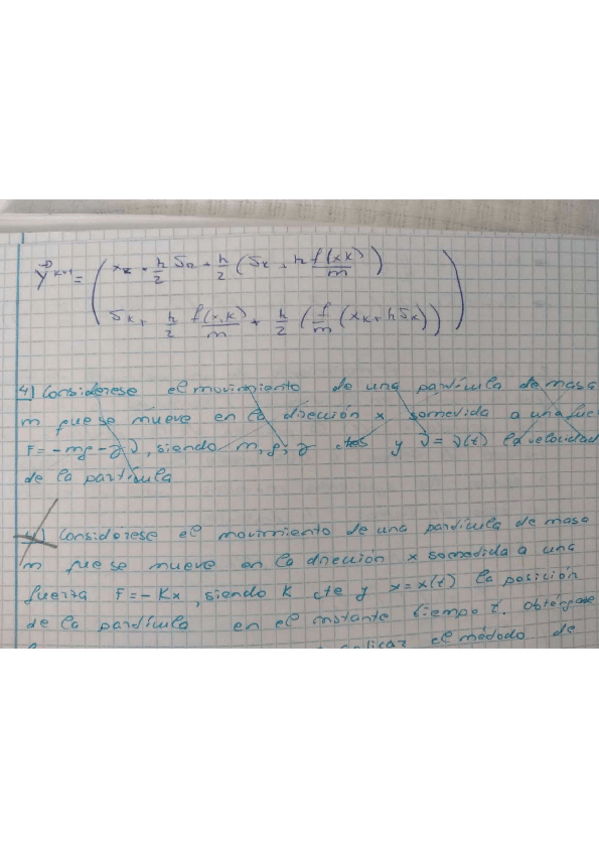 y⃗ᵏ⁺¹ = ( xk + h/2 vk + h/2 (vk + h f(xk)/m)
vk + h/2 f(xk)/m + h/2 (f/m (xk + h vk)) )
4) Considérese el movimiento de una partícula de masa
m que se mueve en la dirección x somedida a una fue
F = -mg - γv, siendo m, g, γ ctes y v = v(t) la velocidad
de la partícula
4) Considérese el movimiento de una partícula de masa
m que se mueve en la dirección x somedida a una
fuerza F = -Kx, siendo K cte y x = x(t) la posición
de la partícula en el instante tiempo t.
aplicar el método de